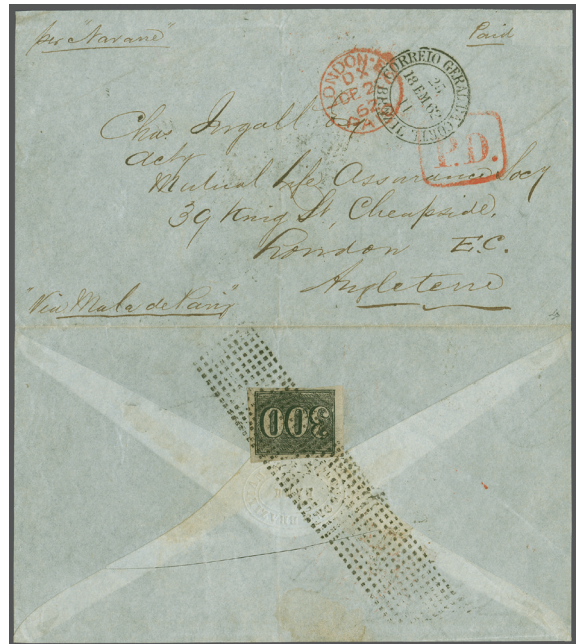 per "Navarre"
Paid
LONDON-E
DX
2
62
PAID
CORREIO GERAL DA CORTE
25
1862
11
P.D.
Chas Ingall Esq
Acty
Mutual Life Assurance Socy
39 King St, Cheapside,
London E.C.
Angleterre
"Via Mala de Paris"
300